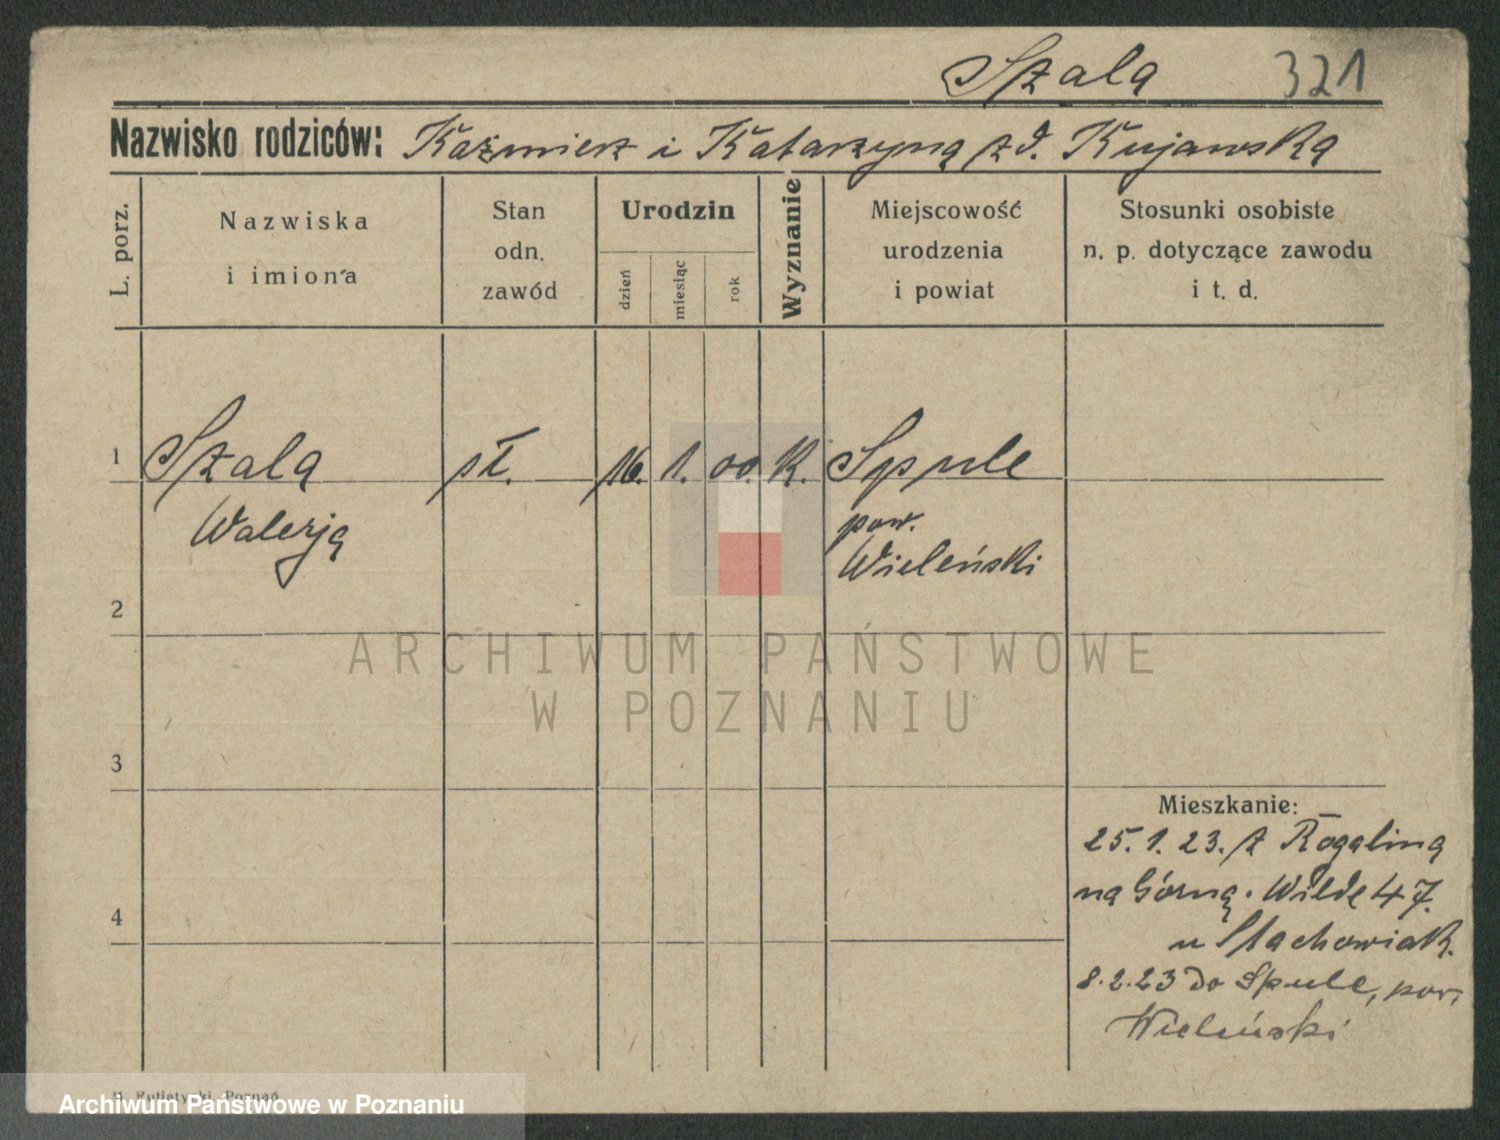 Szala 321
Nazwisko rodziców: Kaźmierz i Katarzyna zd. Kujawska
L. porz.
Nazwiska
i imiona
Stan
odn.
zawód
Urodzin
dzień
miesiąc
rok
Wyznanie
Miejscowość
urodzenia
i powiat
Stosunki osobiste
n. p. dotyczące zawodu
i t. d.
1 Szala sł. 16. 1. 00. K. Spule
Walerja pow.
Wieleński
2
ARCHIWUM PAŃSTWOWE
W POZNANIU
3
Mieszkanie:
25. 1. 23. z Rogalina
na Górna. Wilde 47.
4
u Stachowiak.
8. 2. 23 do Spule, pow.
Wieleński
Poznań
Archiwum Państwowe w Poznaniu